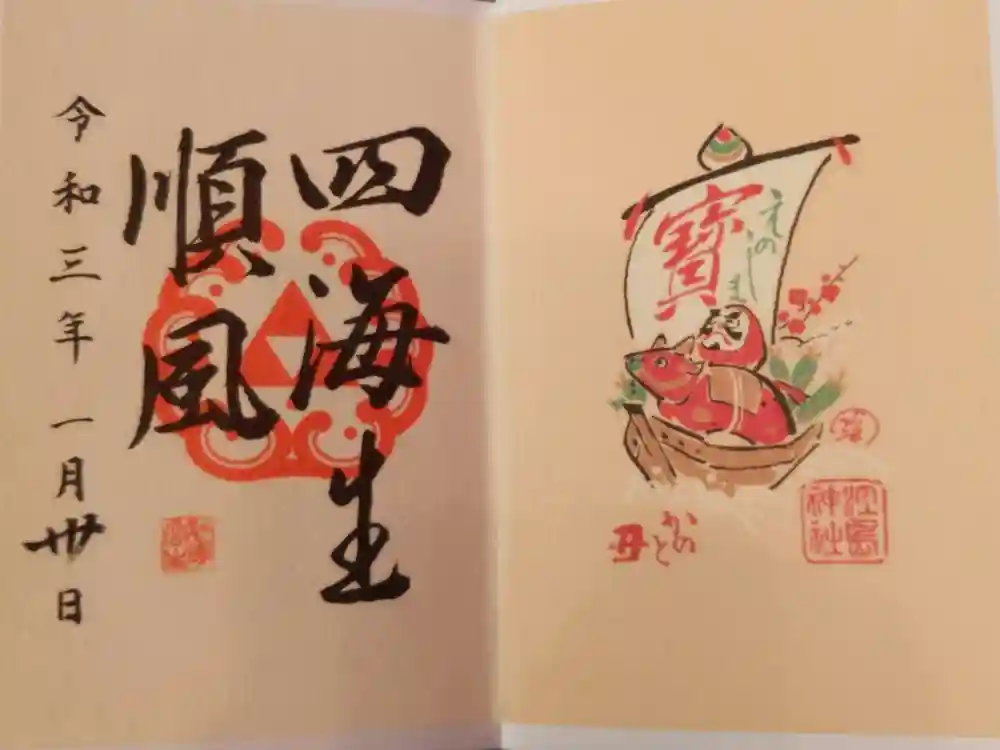 えのしま
寶
江島
神社
かの
と
丑
四海生
順風
令和三年一月卅日